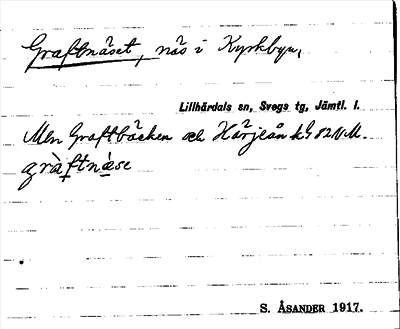 Graftnäset, näs i Kyrkbyn,
Lillhärdals sn, Svegs tg, Jämtl. l.
Mln Graftbäcken och Härjeån k 82 NM.
gràftnàse
S. ÅSANDER 1917.